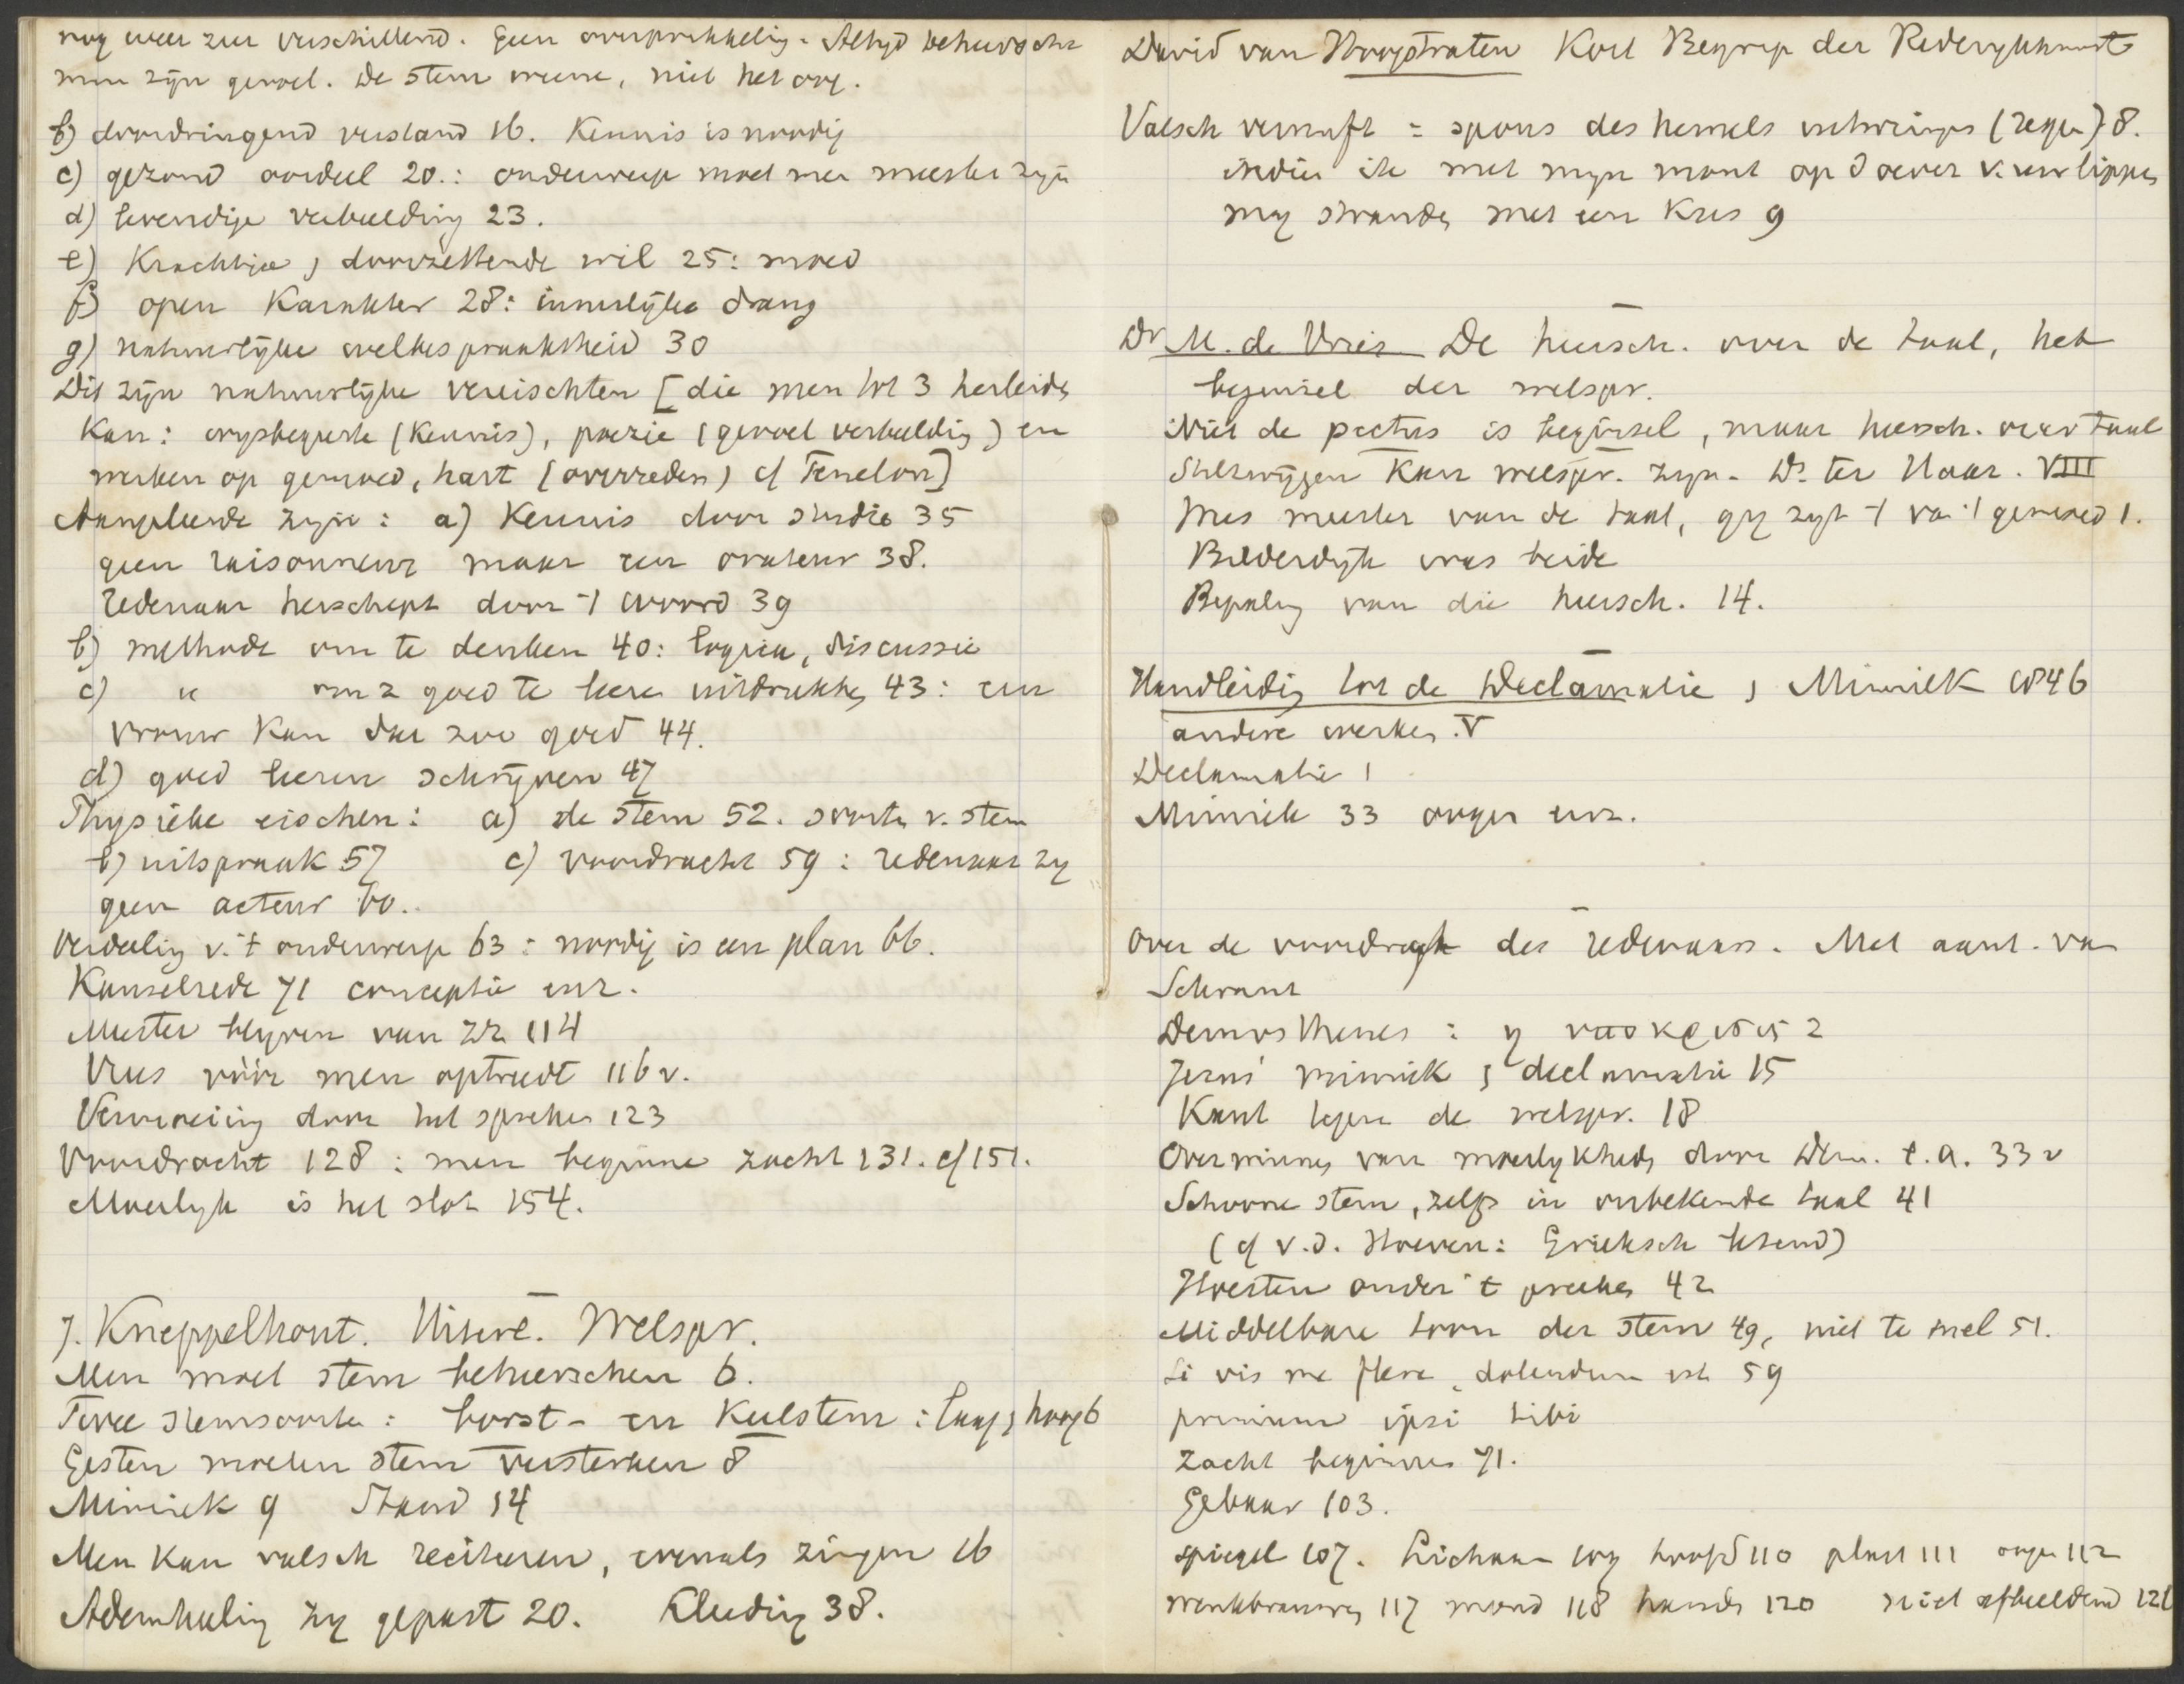 nog weer zeer verschillend. Geen overprikkeling. Altyd beheersche
men zijn gevoel. De stem weene, niet het oog.
b) doordringend verstand 16. Kennis is noodig
c) gezond oordeel 20.: onderwerp moet men meester zijn
d) levendige verbeelding 23.
e) Krachtige, doorzettende wil 25: moed
f) open Karakter 28: innerlijke drang
g) natuurlijke welbespraaktheid 30
Dit zijn natuurlijke vereischten [die men tot 3 herleiden
kan: wijsbegeerte (Kennis), poezie (gevoel verbeelding) en
werken op gemoed, hart (overreden) cf Fenelon]
Aangeleerde zijn: a) Kennis door studie 35
geen raisonneur maar een orateur 38.
redenaar herschept door 't woord 39
b) methode om te denken 40: logica, discussie
c) " om z goed te leeren uitdrukken 43: een
vrouw kan dat zoo goed 44.
d) goed leeren schrijven 47
Physieke eischen: a) de stem 52. soorten v. stem
b) uitspraak 57 c) voordracht 59: redenaar zy
geen acteur 60.
Verdeeling v. 't onderwerp 63: noodig is een plan 66.
Kanselrede 71 conceptie enz.
Meester blyven van zn 114
Vrees vóór men optreedt 116 v.
Vermoeiing door het spreken 123
Voordracht 128: men beginne zacht 131. cf 151.
Moeilyk is het slot 154.
J. Kneppelhout. Uiterl. Welspr.
Men moet stem beheerschen 6.
Twee stemsoorten: borst- en Keelstem: laag, hoog 6
Gesten moeten stem versterken 8
Mimiek 9 Stand 14
Men kan valsch reciteeren, evenals zingen 16
Ademhaling zy gepast 20. Kleeding 38.
David van Hoogstraten Kort Begryp der Rederykkunst
Valsch vernuft = spons des hemels (regen) 8.
indien ik met myn mont op d oever v. uw lippen
mag stranden met een Kus 9
Dr M. de Vries De heersch. over de taal, het
beginsel der welspr.
Niet de pectus is beginsel, maar heersch. over taal
Stilzwijgen kan welspr. zyn. Ds. ter Haar. VIII
Wees meester van de taal, gy zyt 't van 't gemoed 1.
Bilderdyk was beide
Bepaling van die heersch. 14.
Handleiding tot de Declamatie, Mimiek 1846
andere werken. V
Declamatie 1
Mimiek 33 oogen enz.
Over de voordragt des redenaars. Met aant. van
Schrant
Demosthenes: ἡ ὑπόκρισις 2
Jezus' mimiek, declamatie 15
Kant tegen de welspr. 18
Overwinnen van moeilykheden door Dem. e.a. 33 v
Schoone stem, zelfs in onbekende taal 41
(cf v.d. Hoeven: Grieksch lezend)
Hoesten onder 't preeken 42
Middelbare toon der stem 49, niet te snel 51.
Si vis me flere, dolendum est 59
primum ipsi tibi
Zacht beginnen 71.
Gebaar 103.
spiegel 107. Lichaam 109 hoofd 110 plaat 111 oogen 112
wenkbrauwen 117 mond 118 handen 120 niet afbeeldend 121